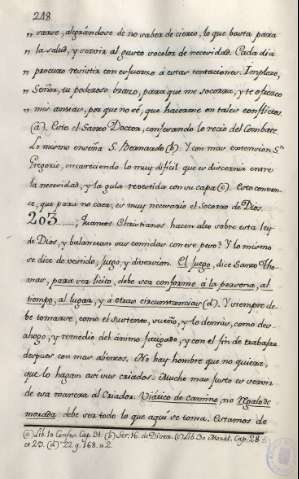 218
" varse, alegrándose de no saber de cierto, lo que basta para
" la salud, y servir al gusto so color de necesidad. Cada dia
" procuro resistir con esfuerzo á estas tentaciones. Imploro,
" Señor, tu poderoso brazo, para que me socorras, y te ofrezco
" mis ansias, por que no sé, que hacerme en tales conflictos
(a). Esto el Sacro Doctor, confesando lo recio del combate
Lo mismo enseña S. Bernardo (b). Y con mas extencion Sn
Gregorio, encareciendo lo muy dificil que es discernir entre
la necesidad, y la gula revestida con su capa (c). Esto convence,
que para no caer, es muy necesario el socorro de Dios.
203......¿Quantos Christianos hacen alto sobre esta ley
de Dios, y balancean sus comidas con ese peso? Y lo mismo
se dice de vestido, juego, y diversion. El juego, dice Santo Tho-
mas, para ser licito, debe ser conforme á la persona, al
tiempo, al lugar, y á otras circunstancias (d). Y siempre de-
be tomarse, como el sustento, sueño, y lo demas, como des-
ahogo, y remedio del ánimo fatigado, y con el fin de trabajar
despues con mas aliento. No hay hombre que no quiera,
que lo hagan asi sus criados. Mucho mas justo es servir
de esa manera al Criador. Viático de camino, no Regalo de
morada debe ser todo lo que aquí se toma. Estamos de
(a) Lib. 10 Confess. Cap. 31. (b) Ser. 16. de Divers. (c) Lib. 30 Moral. Cap. 28.
(d) 2a 2ae q. 168. a. 2.